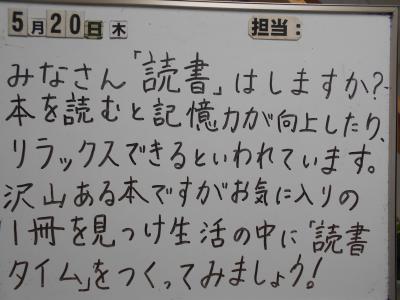 5月20日木 担当:
みなさん「読書」はしますか?
本を読むと記憶力が向上したり、
リラックスできるといわれています。
沢山ある本ですがお気に入りの
1冊を見つけ生活の中に「読書
タイム」をつくってみましょう!